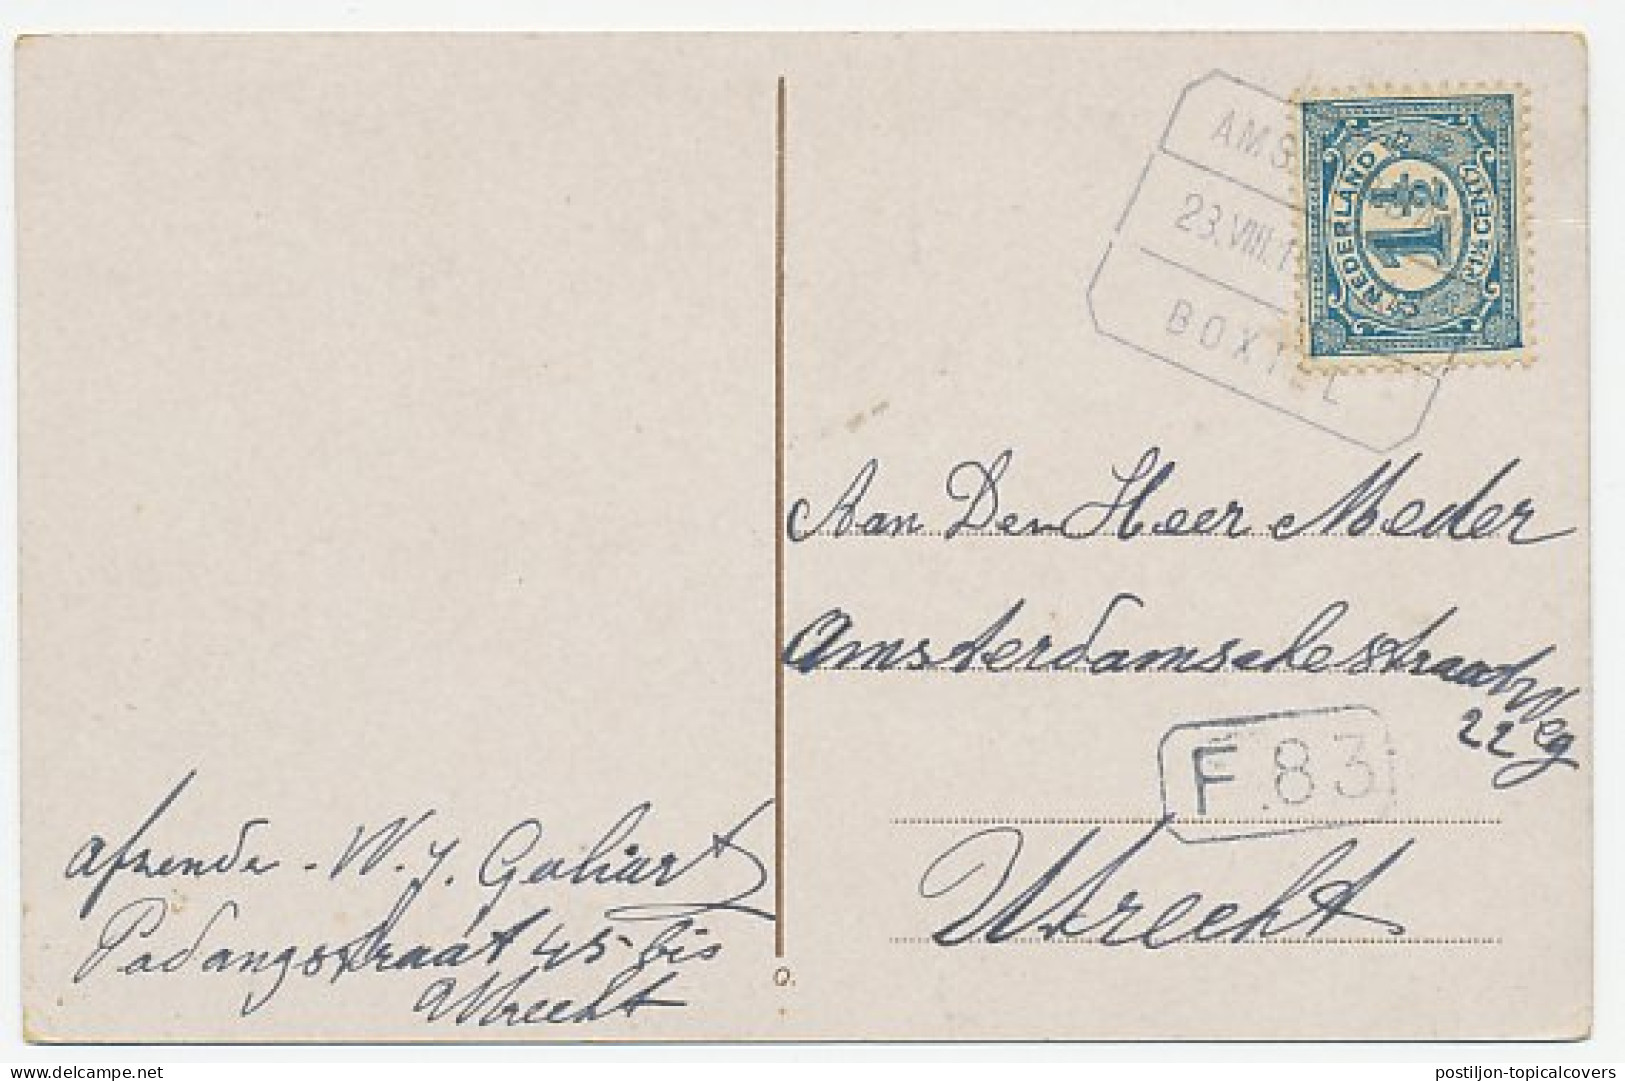 AMS
23.VIII.1
BOXTEL
NEDERLAND
1 1/2
1½ CENT
Aan Den Heer Meder
Amsterdamschestraatweg
22
F.83
Utrecht
afzende - W. J. Goliart
Padangstraat 45 bis
Utrecht
Q.
delcampe.net
postiljon-topicalcovers